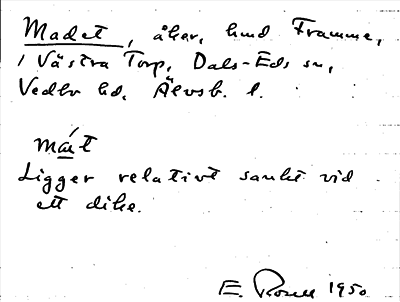 Madet, åker, hmd Framme,
i Västra Torp, Dals-Eds sn,
Vedbo hd, Älvsb. l.
mát
Ligger relativt sankt vid
ett dike.
E. Rosell 1950